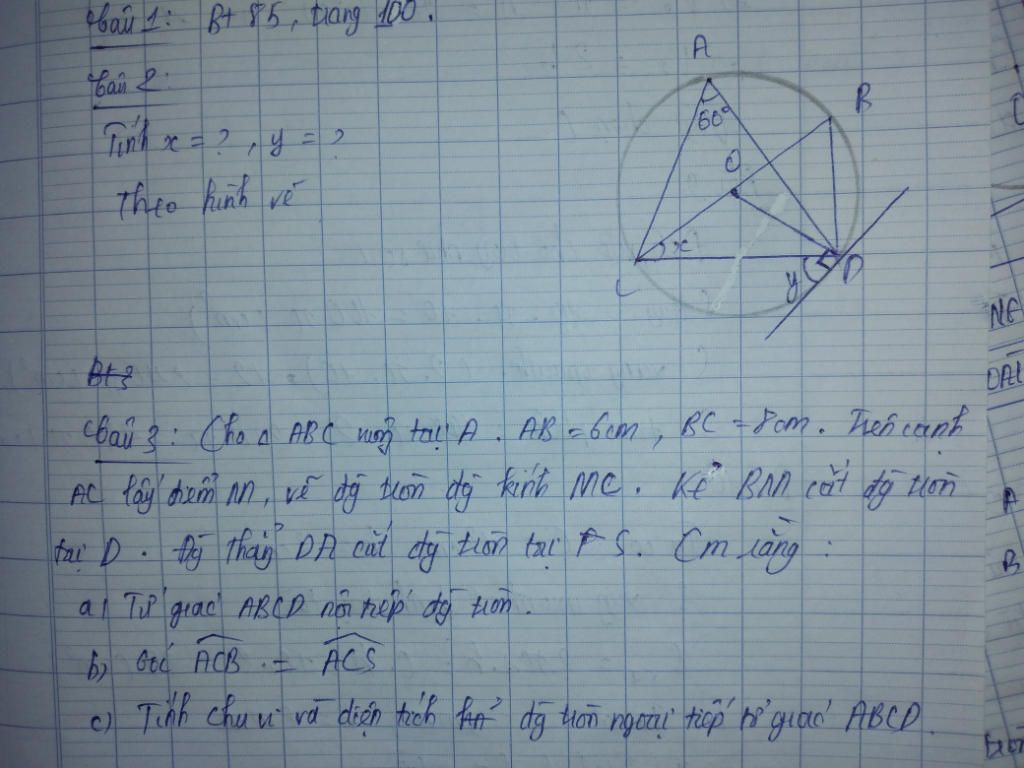 Bài 1: Bt 85, trang 100.
Bài 2:
Tính x = ?, y = ?
Theo hình vẽ
A
B
60°
O
x
C
D
y
Bài 3: Cho Δ ABC vuông tại A. AB = 6cm, BC = 8cm. Trên cạnh
AC lấy điểm M, vẽ đg tròn đg kính MC. Kẻ BM cắt đg tròn
tại D. Đg thẳng DA cắt đg tròn tại S. Cm rằng:
a) Tứ giác ABCD nội tiếp đg tròn.
b) Góc ACB = ACS
c) Tính chu vi và diện tích đg tròn ngoại tiếp tứ giác ABCD.